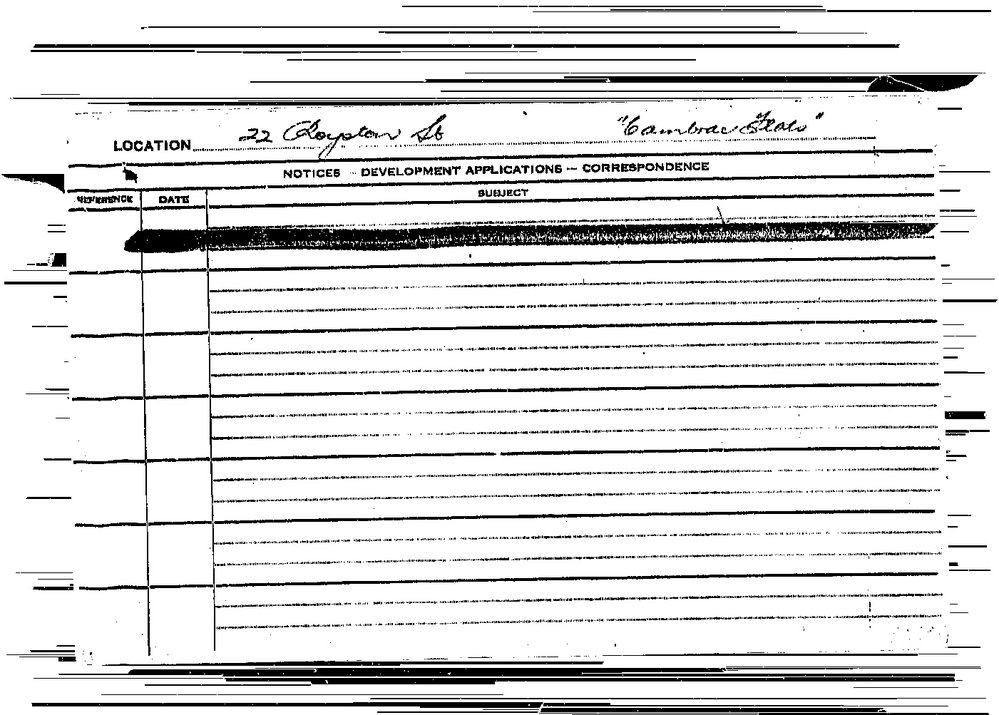 LOCATION 22 Croydon St "Cambrae Flats"
NOTICES — DEVELOPMENT APPLICATIONS — CORRESPONDENCE
REFERENCE DATE SUBJECT